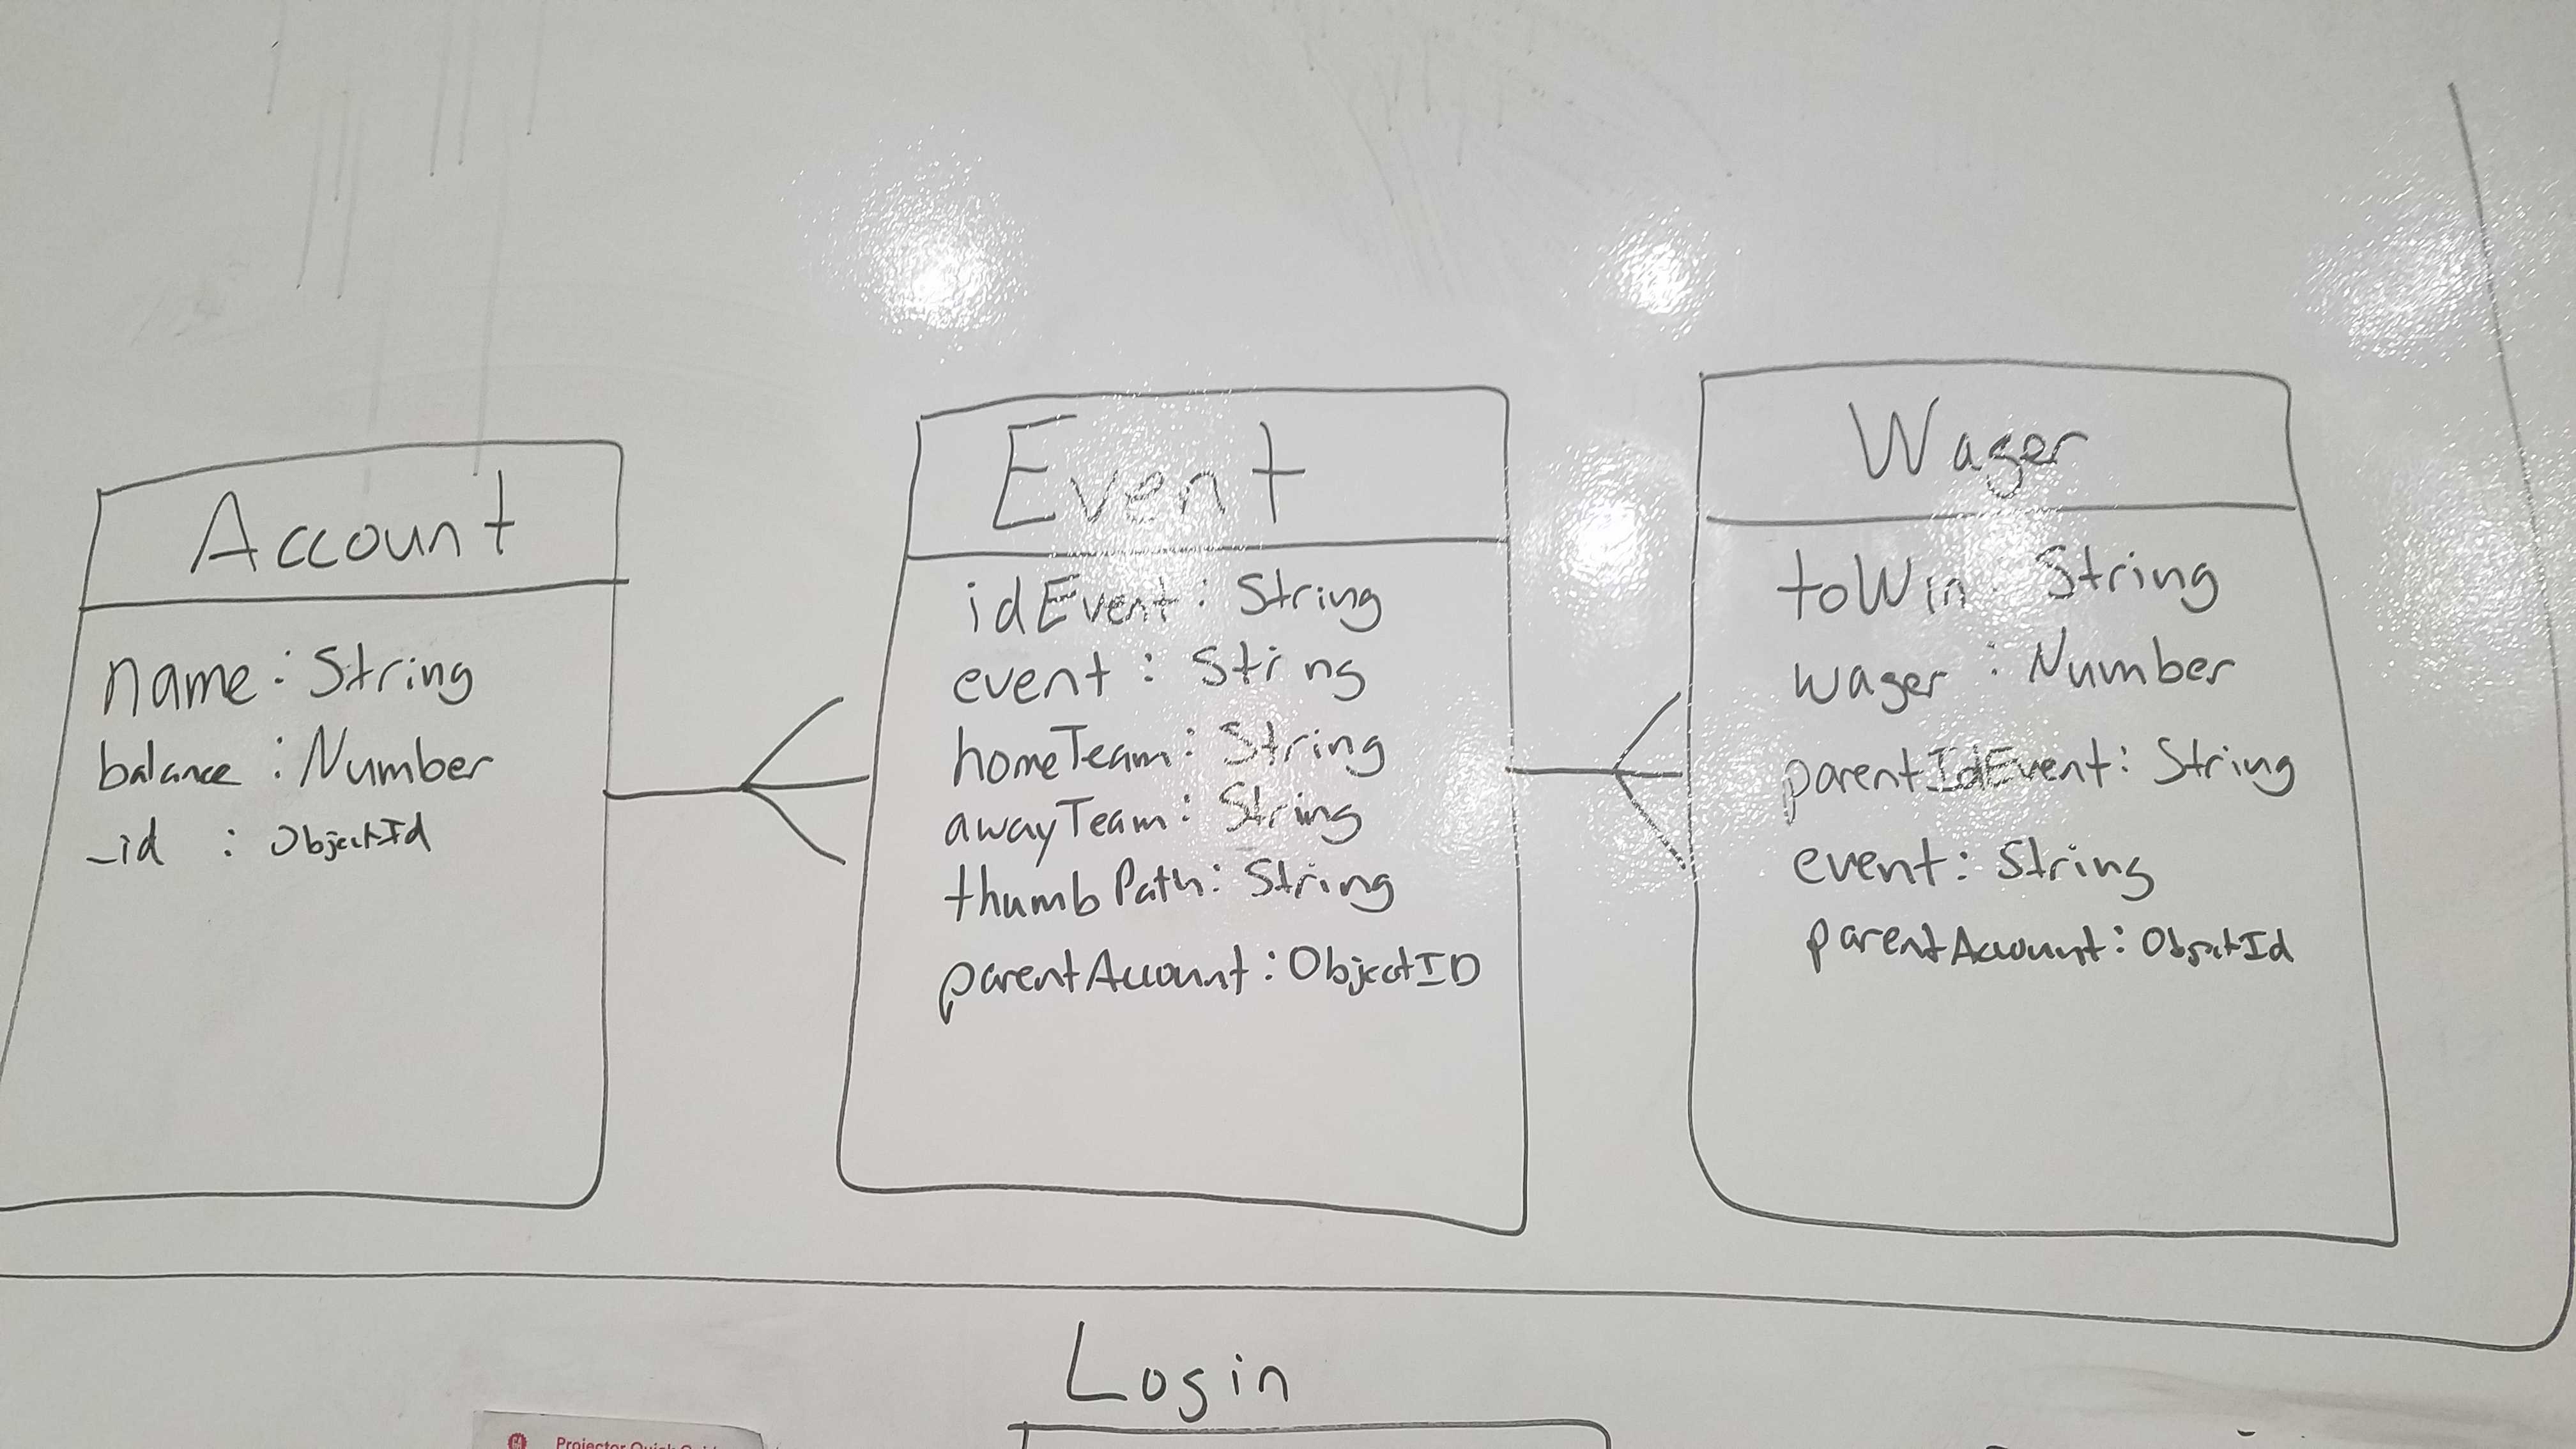 Account
name: String
balance: Number
_id : ObjectId
Event
idEvent: String
event: String
homeTeam: String
awayTeam: String
thumbPath: String
parentAccount: ObjectID
Wager
toWin: String
wager: Number
parentIdEvent: String
event: String
parentAccount: ObjectId
Login
Projector Quick